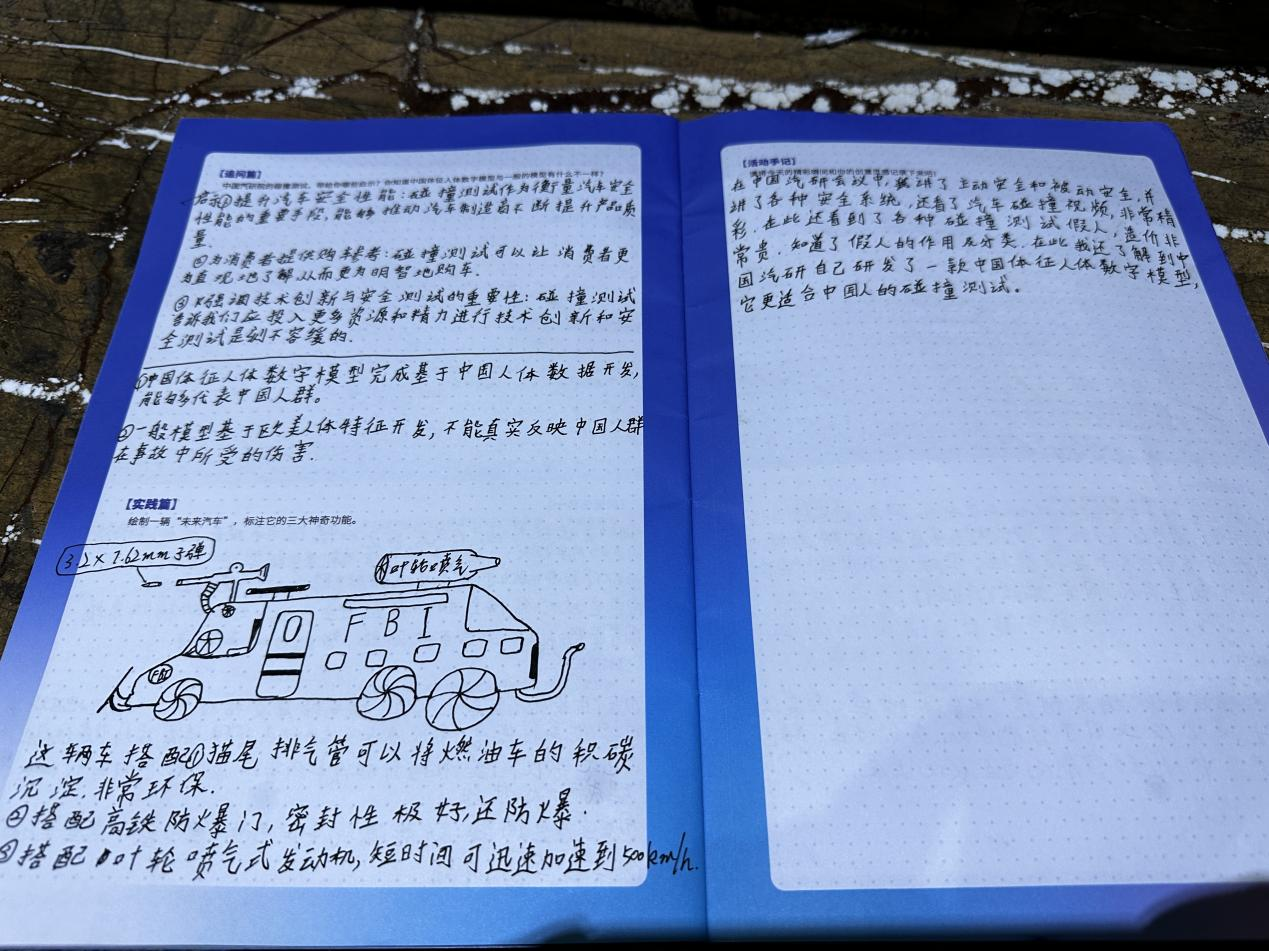 【追问篇】
中国汽研院的碰撞测试,带给你哪些启示?你知道中国体征人体数字模型与一般的模型有什么不一样?
启示①提升汽车安全性能:碰撞测试作为衡量汽车安全
性能的重要手段,能够推动汽车制造商不断提升产品质
量.
②为消费者提供购车参考:碰撞测试可以让消费者更
为直观地了解从而更为明智地购车.
③强调技术创新与安全测试的重要性:碰撞测试
告诉我们应投入更多资源和精力进行技术创新和安
全测试是刻不容缓的.
①中国体征人体数字模型完成基于中国人体数据开发,
能够代表中国人群。
②一般模型基于欧美人体特征开发,不能真实反映中国人群
在事故中所受的伤害.
【实践篇】
绘制一辆“未来汽车”,标注它的三大神奇功能。
3.2×7.62mm子弹
叶轮喷气
FBI
FBI
这辆车搭配①猫尾排气管可以将燃油车的积碳
沉淀.非常环保.
②搭配高铁防爆门,密封性极好,还防爆.
③搭配叶轮喷气式发动机,短时间可迅速加速到500km/h.
【活动手记】
请将今天的精彩瞬间和你的创意灵感记录下来吧!
在中国汽研会议中,讲了主动安全和被动安全,并
讲了各种安全系统,还看了汽车碰撞视频,非常精
彩.在此还看到了各种碰撞测试假人,造价非
常贵.知道了假人的作用及分类.在此我还了解到中
国汽研自己研发了一款中国体征人体数字模型,
它更适合中国人的碰撞测试。